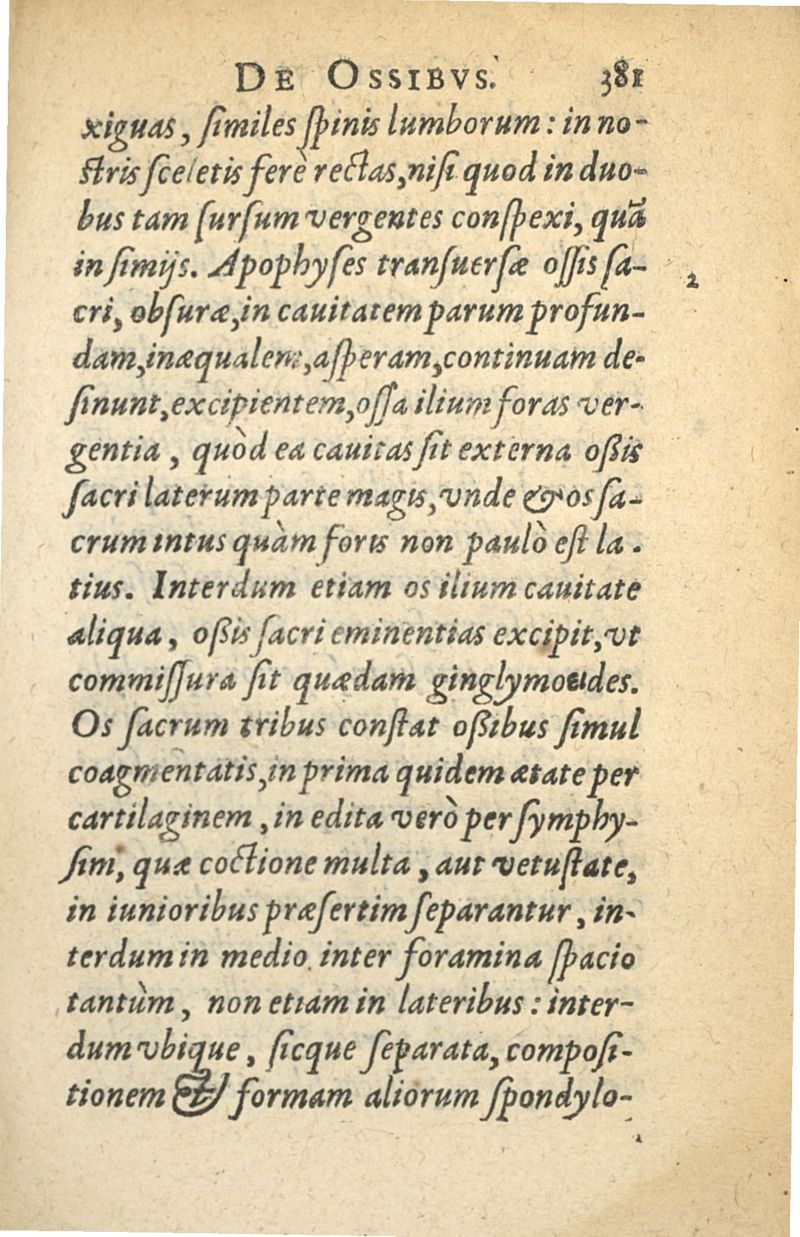 DE OSSIBVS. 381
xiguas, ſimiles ſpinis lumborum: in no-
ſtris ſceletis ferè rectas, niſi quod in duo-
bus tam ſurſum vergentes conſpexi, quã
in ſimijs. Apophyſes tranſuerſæ oſſis ſa- 2
cri, obſuræ, in cauitatem parum profun-
dam, inæqualem, aſperam, continuam de-
ſinunt, excipientem, oſſa ilium foras ver-
gentia, quòd ea cauitas ſit externa oßis
ſacri laterum parte magis, vnde & os ſa-
crum intus quàm foris non paulò eſt la-
tius. Interdum etiam os ilium cauitate
aliqua, oßis ſacri eminentias excipit, vt
commiſſura ſit quædam ginglymoeides.
Os ſacrum tribus conſtat oßibus ſimul
coagmentatis, in prima quidem ætate per
cartilaginem, in edita verò per ſymphy-
ſim, quæ coctione multa, aut vetuſtate,
in iunioribus præſertim ſeparantur, in-
terdum in medio inter foramina ſpacio
tantùm, non etiam in lateribus: inter-
dum vbique, ſicque ſeparata, compoſi-
tionem & formam aliorum ſpondylo-